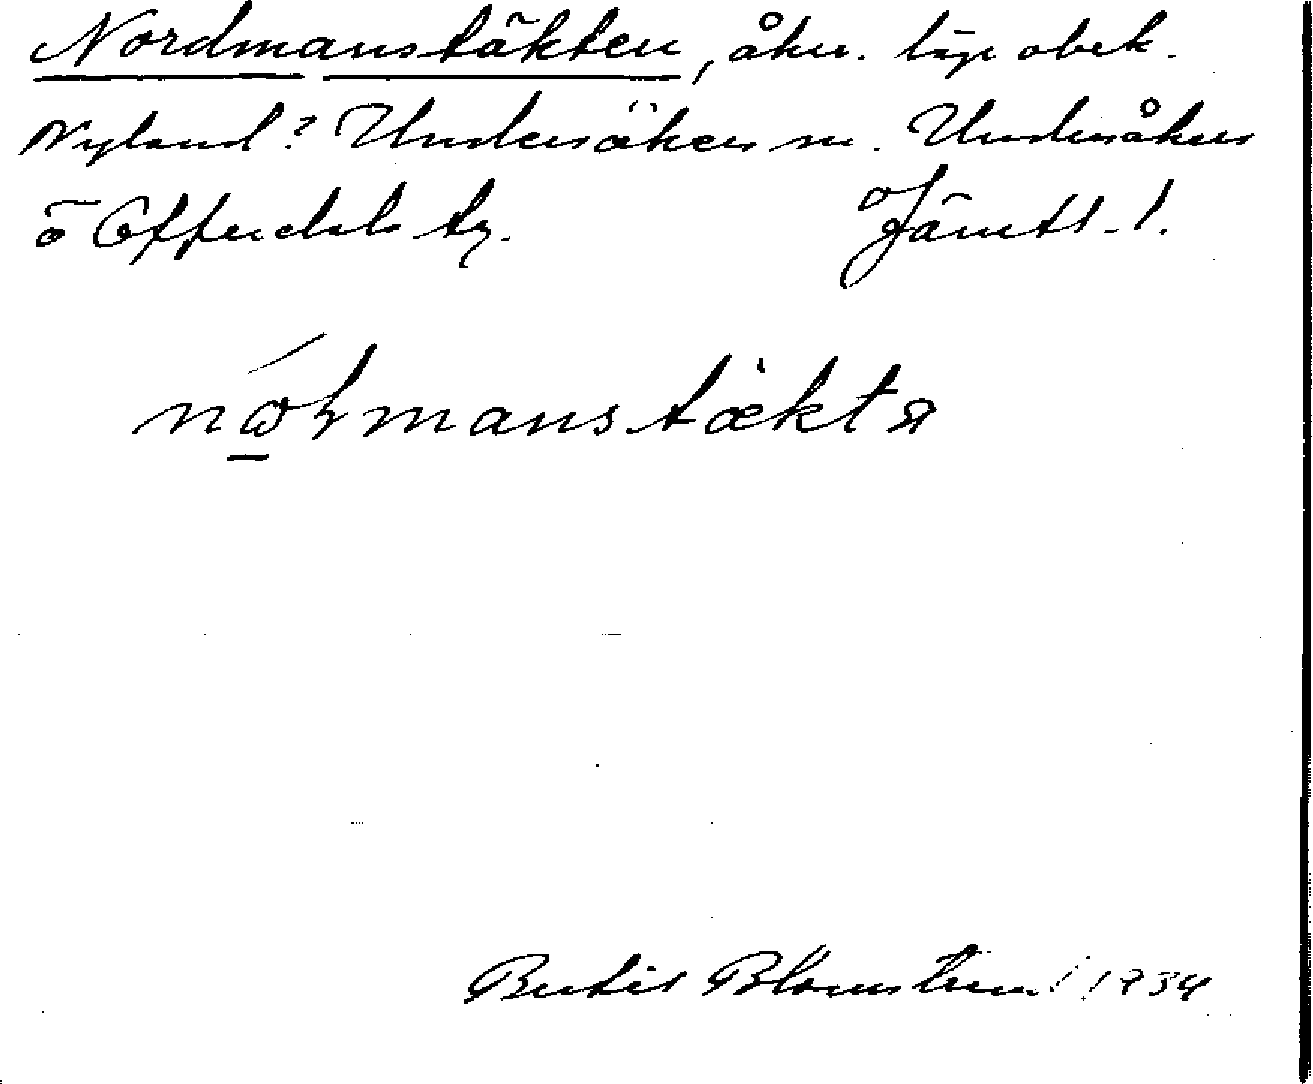 Nordmanstäkten, åker. läge obek.
Nyland? Undersåkers sn. Undersåkers
o Offerdals tg. Jämtl. l.
nórmanstækt
Bertil Blomström 1934